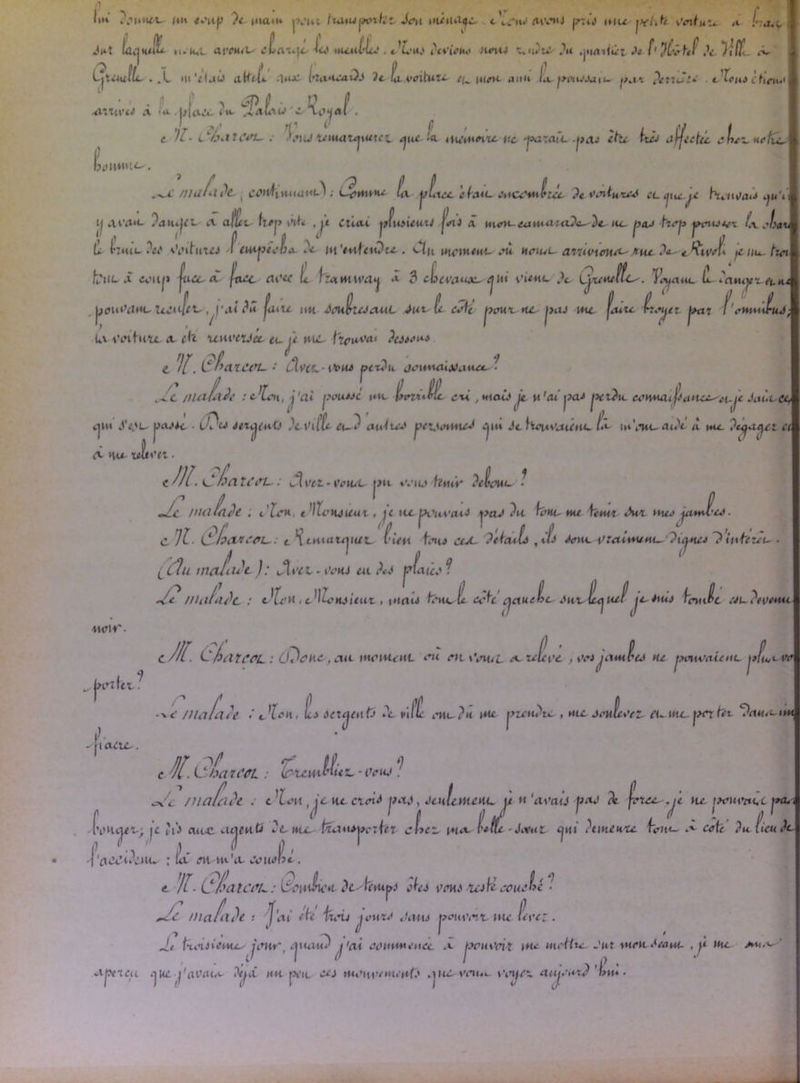 lui donner un coup de main pour transporter son ménage. Nous avons pris une petite voiture à bras
sur laquelle nous avons chargé les meubles. Nous devions nous rendre du quartier de l'Hôtel de Ville à
Grenelle. Je m'étais attelé aux brancards de la voiture et mon ami la poussait par derrière. Nous étions
arrivés à la place du Palais-Royal.
M. Charcot : Vous remarquerez que la mémoire ne paraît pas être très affectée chez notre
homme.
Le malade, continuant : Comme la place était encombrée de voitures et que je trouvais qu'il
y avait danger à aller trop vite, je criai plusieurs fois à mon camarade de ne pas trop pousser la
Le bruit des voitures l'empêcha de m'entendre. Au moment où nous arrivions rue de Rivoli je me
tout à coup face à face avec le tramway à 3 chevaux qui vient de Grenelle. Voyant le danger et ne
pouvant reculer, j'ai dû faire un soubresaut sur le côté pour ne pas me faire broyer par l'omnibus;
la voiture a été renversée et je me trouvai dessous.
M. Charcot : Avez-vous perdu connaissance?
Le malade : Non, j'ai poussé un horrible cri, mais je n'ai pas perdu connaissance et je sais ce
qui s'est passé. Des sergents de ville et d'autres personnes qui se trouvaient là m'ont aidé à me dégager et
à me relever.
M. Charcot : Avez-vous pu vous tenir debout?
Le malade : Non, Monsieur, je ne pouvais pas du tout me tenir sur mes jambes.
M. Charcot : Remarquez bien tous ces détails, ils sont vraiment dignes d'intérêt.
(Au malade) : Avez-vous eu des plaies?
Le malade : Non, Monsieur, mais tout le côté gauche sur lequel je suis tombé est devenu
noir.
M. Charcot : Donc, au moment où on vous a relevé, vos jambes ne pouvaient plus vous
porter?
Le malade : Non, les sergents de ville ont dû me prendre, me soulever et me porter dans un
fiacre.
M. Charcot : Trembliez-vous?
Le malade : Non, je ne crois pas, seulement je n'avais pas de force, je ne pouvais pas
bouger; je dis aux agents de me transporter chez ma belle-sœur qui demeure tout à côté du lieu de
l'accident : là on m'a couché.
M. Charcot : Combien de temps êtes vous resté couché?
Le malade : J'ai été trois jours sans pouvoir me lever.
Le troisième jour, quand j'ai commencé à pouvoir me mettre sur mon séant, je me suis
aperçu que j'avais déjà un peu ces mouvements que vous voyez aujourd'hui.